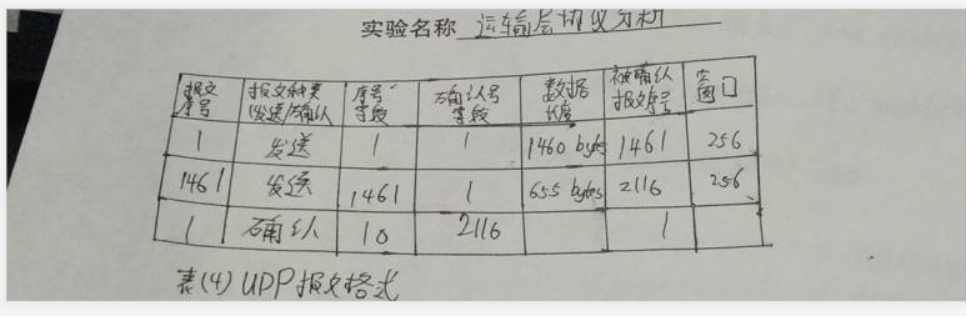 实验名称 运输层协议分析
报文序号 报文种类(发送/确认) 序号字段 确认号字段 数据长度 被确认报文序号 窗口
1 发送 1 1 1460 bytes 1461 256
1461 发送 1461 1 655 bytes 2116 256
1 确认 10 2116 1
表(4) UDP报文格式